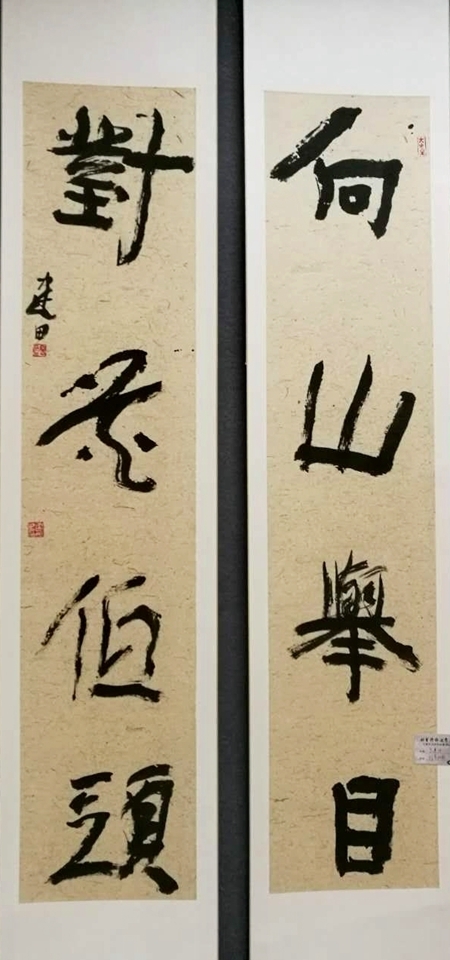 向山舉目
對低頭
建田